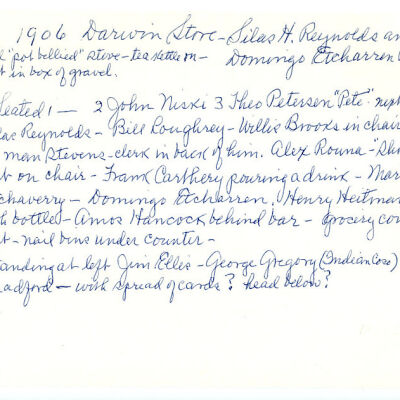 1906 Darwin Store - Silas H. Reynolds an
"pot bellied" stove - teakettle on - Domingo Etcharren
t in box of gravel.
eated 1 - 2 John Niski 3 Theo Petersen "Pete" - neph
las Reynolds - Bill Loughrey - Willis Brooks in chair
man Stevens - clerk in back of him. Alex Rouna - "Sh
t on chair - Frank Carthery pouring a drink - Mar
chaverry - Domingo Etcharren, Henry Heitman
h bottle - Amos Hancock behind bar - grocery cou
t - nail bins under counter -
tanding at left Jim Ellis - George Gregory (Indian Coso)
radford - with spread of cards? head below?